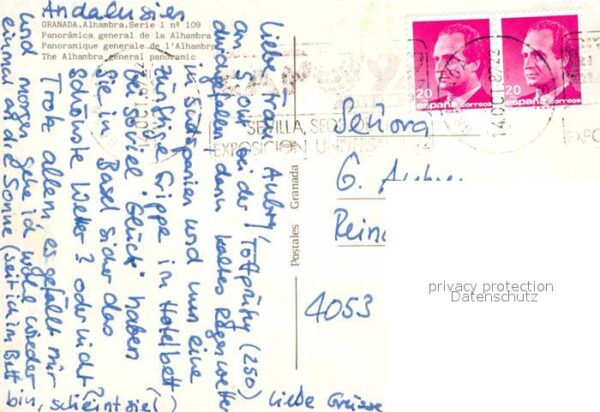 GRANADA. Alhambra. Serie 1 nº 109
Panorámica general de la Alhambra
Panoramique generale de l'Alhambra
The Alhambra general panoramic
Andalusien
Liebe Frau Aubry,
(250)
an 5 von bei der
denn kaltes Regenwetter
in Südspanien und nun eine
zünftige Grippe im Hotelbett
bei soviel "Glück" haben
Sie in Basel sicher das
Schönste Wetter? oder nicht?
Trotz allem es gefällt mir
und morgen gehe ich wohl wieder
einmal an die Sonne (seit ich im Bett
bin, scheint sie!)
Liebe Grüsse
Postales Granada
20
españa correos
20
españa correos
14 OCT 87
SEVILLA, SEDE
EXPOSICION UNIVERSAL
Señora
G. Aubry
4053
privacy protection
Datenschutz